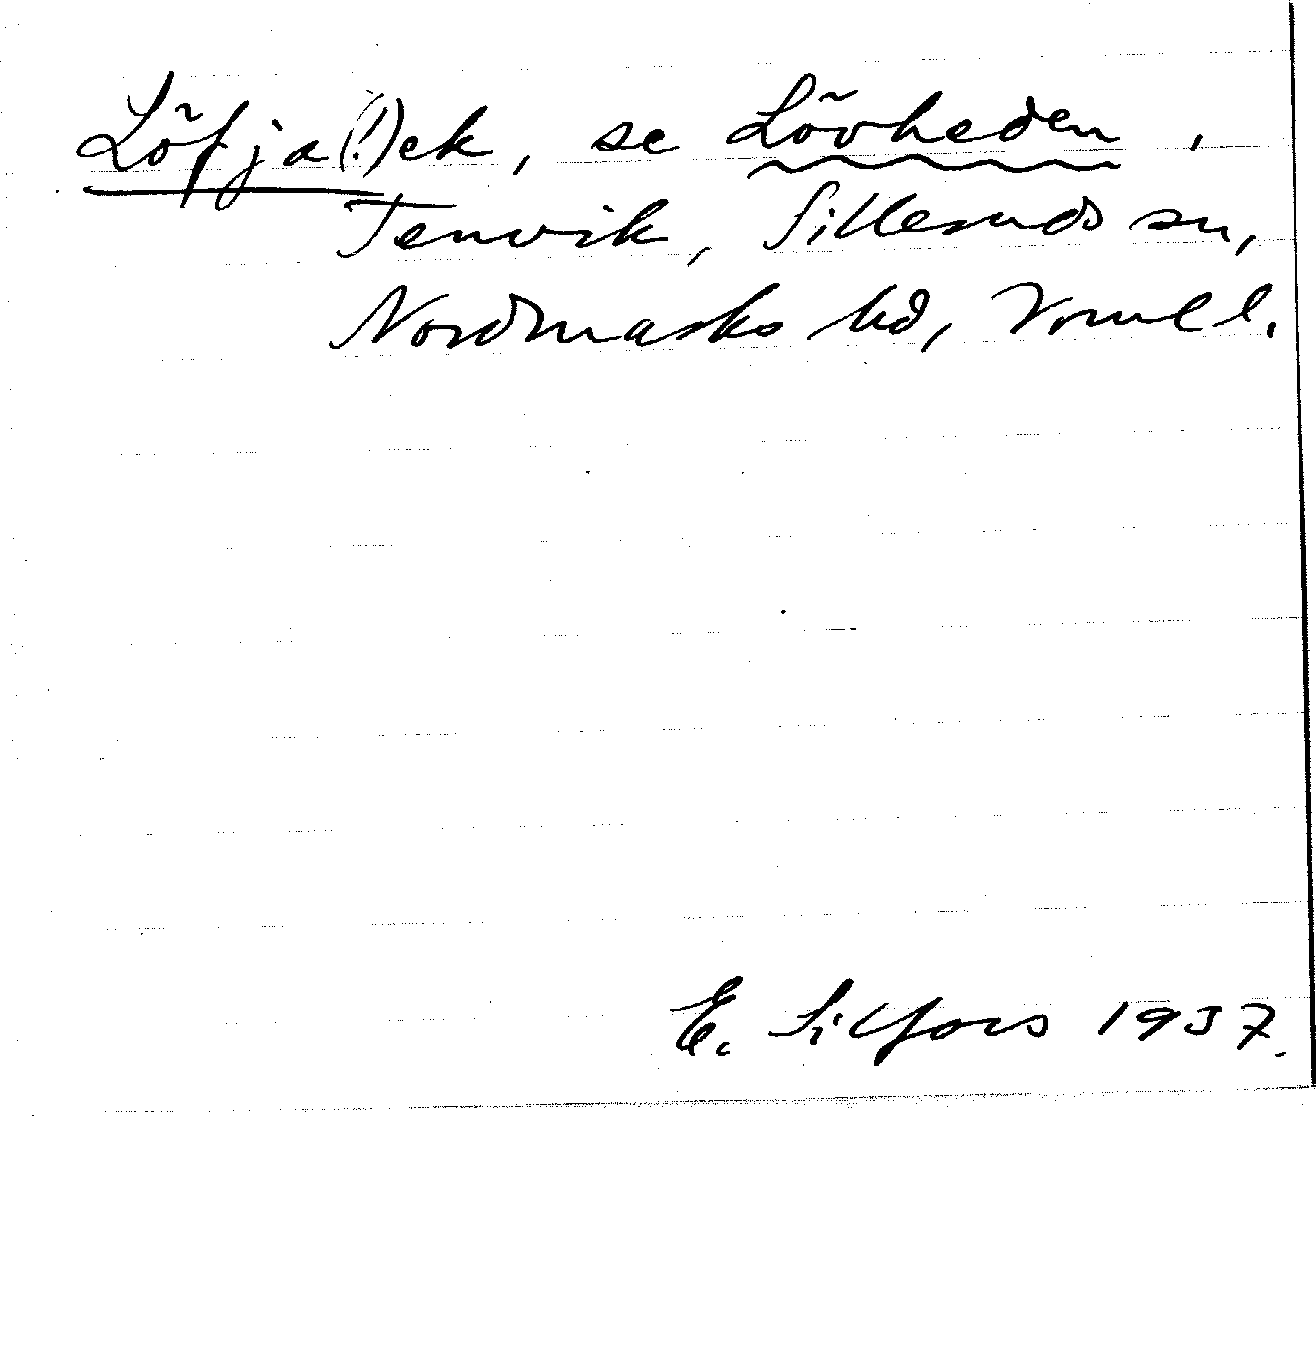 Löfja(!)ek, se Lövheden,
Tenvik, Silleruds sn,
Nordmarks hd, Vrml l.
E. Silfors 1937.